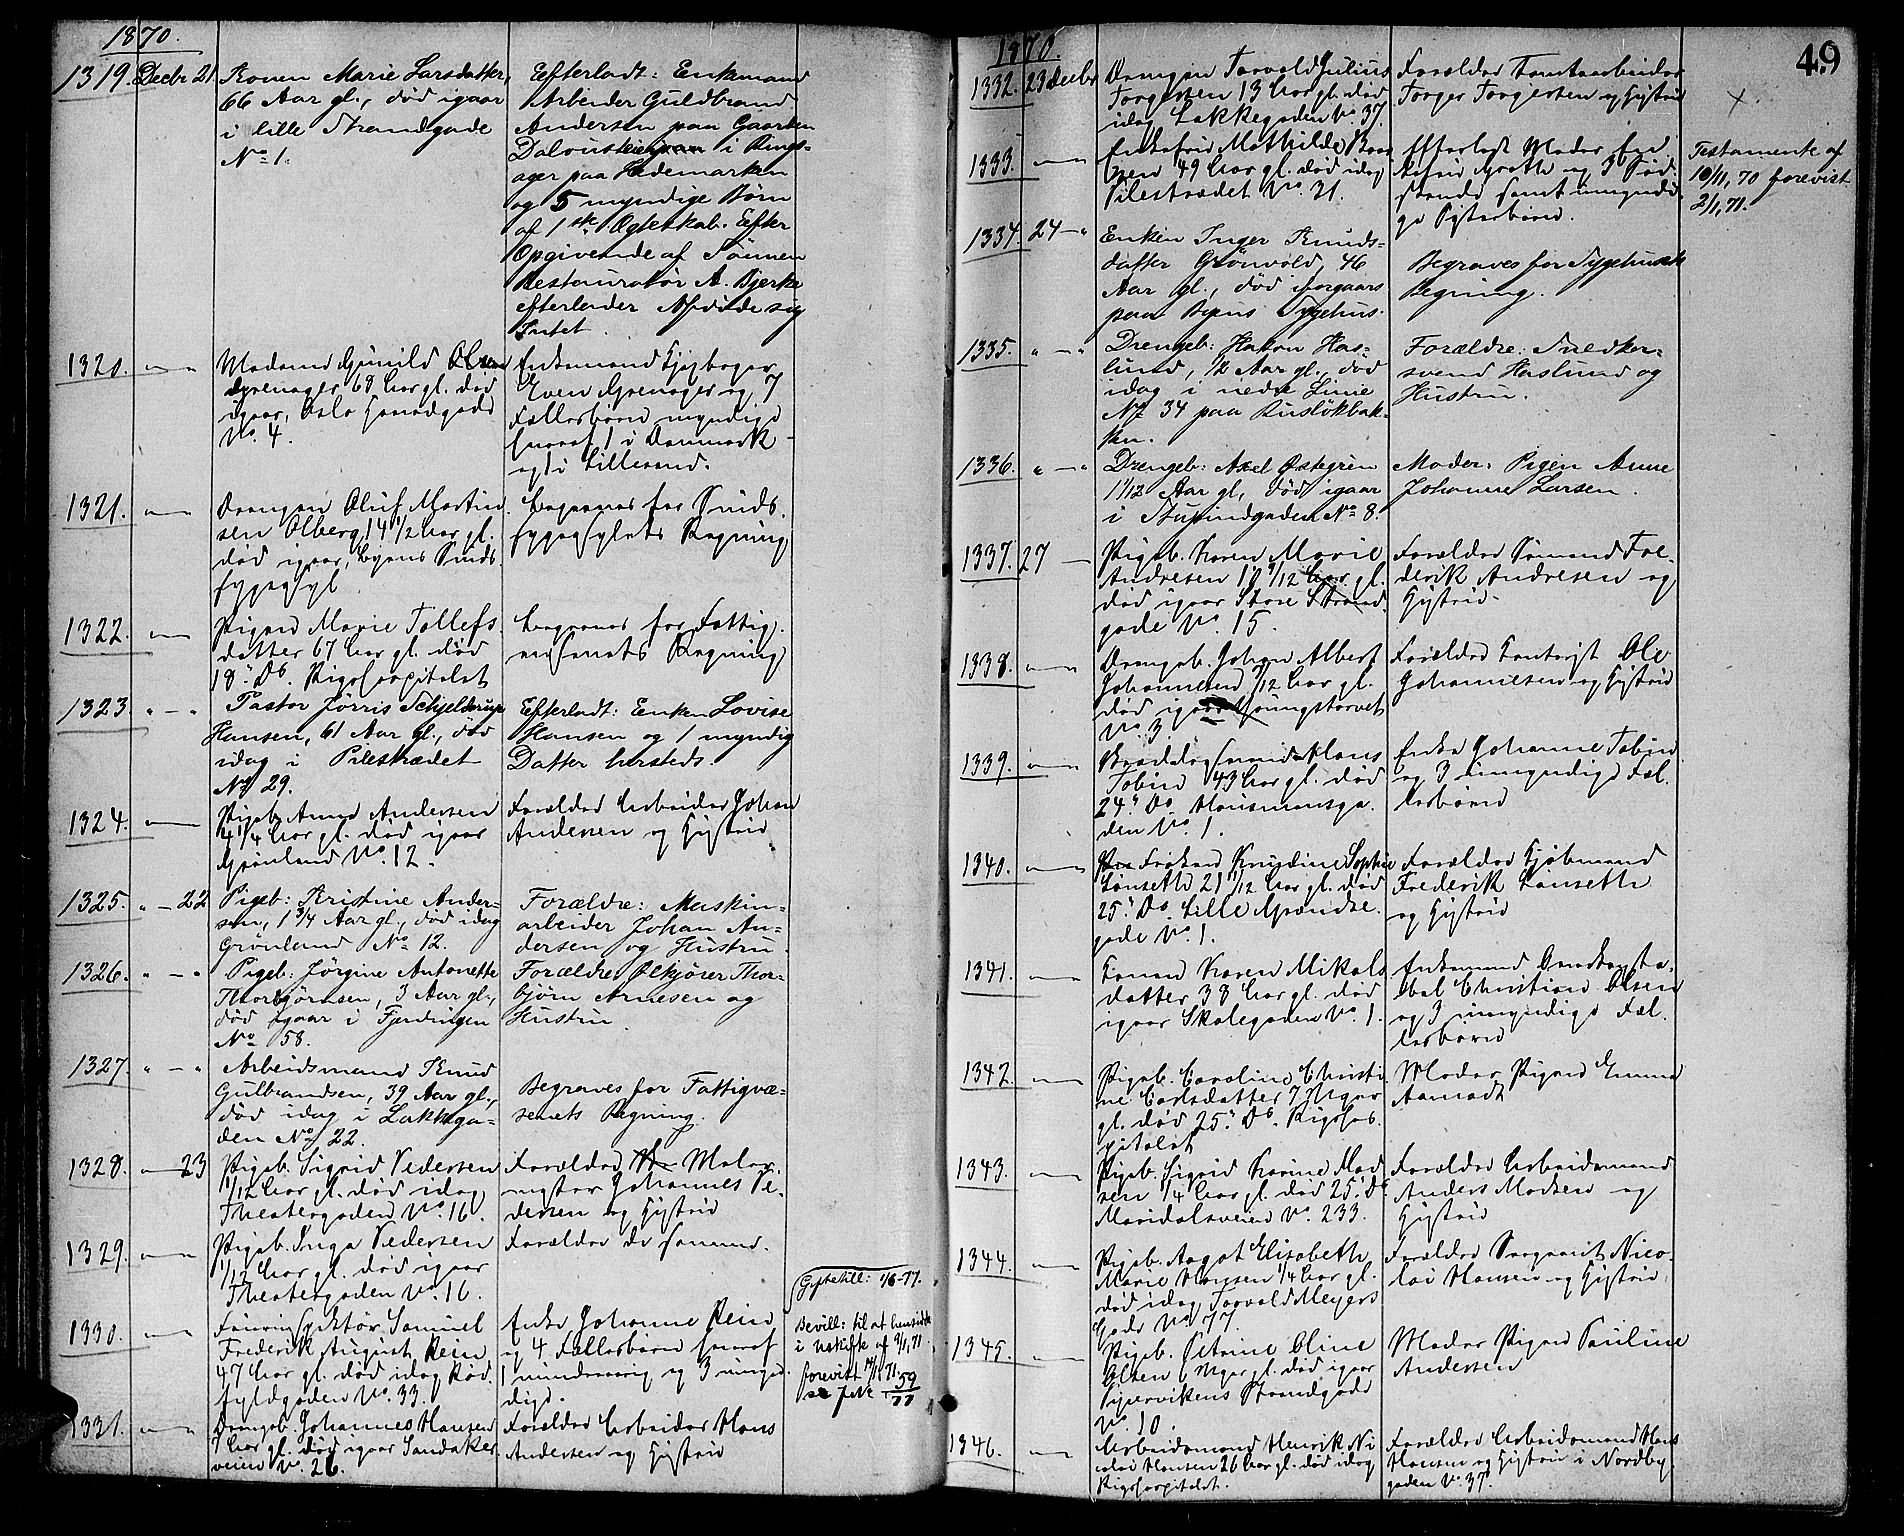 1870.
1319. Decbr 21. Konen Marie Larsdatter,
66 Aar gl., død igaar
i lille Strandgade
No 1.
Efterladt: Enkemand
Arbeider Guldbrand
Andersen paa Gaarden
i Rings-
ager paa Hedemarken
og 5 myndige Børn
af 1ste Ægteskab. Efter
Opgivende af Sønnen
Restauratør A. Bjerke
efterlader Afdøde sig
Intet.
1320. Madame Gunild Olsen
Grenager 68 Aar gl. død
igaar, Oslo
No. 4.
Enkemand
Even Grenager og 7
Fællesbørn myndige
hvoraf 1 i Danmark
og 1 i Lillesand.
1321. Drengen Oluf Martin-
sen Olberg 14 1/2 Aar gl.
død igaar, Byens Sinds-
sygeasyl
Begraves for Sinds-
sygeasylets Regning
1322. Pigen Marie Tollefs-
datter 67 Aar gl. død
18de Ds. Rigshospitalet
Begraves for Fattig-
væsenets Regning
1323. Pastor Jørris Schjelderup
Hansen, 61 Aar gl., død
idag i Pilestrædet
No 29.
Efterladt: Enken Lovise
Hansen og 1 myndig
Datter hersteds.
1324. Pigeb. Anna Andersen
4 1/4 Aar gl. død igaar
Grønland No. 12.
Forældre Arbeider Johan
Andersen og Hustru
1325. 22 Pigeb: Kristine Ander-
sen, 1 3/4 Aar gl., død idag
Grønland No 12.
Forældre: Maskin-
arbeider Johan An-
dersen og Hustru.
1326. Pigeb: Jørgine Antonette
Thorbjørnsen, 3 Aar gl.,
død igaar i Fjerdingen
No 58.
Forældre Ølkjører Thor-
bjørn Arnesen og
Hustru.
1327. Arbeidsmand Knud
Gulbrandsen, 39 Aar gl.,
død idag i Lakkega-
den No 22.
Begraves for Fattigvæ-
senets Regning.
1328. 23 Pigeb. Sigrid Pedersen
1/12 Aar gl. død idag
Theatergaden No. 16.
Forældre Maler-
mester Johannes Pe-
dersen og Hustru
1329. Pigeb. Inga Pedersen
1/12 Aar gl. død igaar
Theatergaden No. 16.
Forældre de samme.
1330. Samuel
Frederik August Rein
47 Aar gl. død idag Rød-
fyldgaden No. 33.
Enke Johanne Rein
og 4 Fællesbørn hvoraf
1 mindreaarig og 3 umyn-
dige.
1/6-77.
Bevill: til at hensidde
i Uskifte af
forevist
59
77
1331. Drengeb. Johannes Hansen
Aar gl. død igaar Sandaker-
veien No. 26.
Forældre Arbeider Hans
Andersen og Hustru
1870.
49
1332. 23 Decbr Drengen Torvald Julius
Torgersen 13 Aar gl. død
idag Lakkegaden No. 37.
Forældre Tomtearbeider
Torger Torgersen og Hustru
1333. Enkefru Mathilde
49 Aar gl. død idag
Pilestrædet No. 31.
Efterladt Moder En-
kefru Grøth og 3 Sød-
skende samt umyndi-
ge Søsterbørn.
Testamente af
10/11, 70 forevist
2/1, 71.
1334. 24 Enken Inger Knuds-
datter Grønvold, 46
Aar gl., død forgaars
paa Byens Sygehus.
Begraves for Sygehusets
Regning.
1335. Drengeb: Hakon Has-
lund, 1/2 Aar gl., død
idag i nedre Linie
No 34 paa Rusløkbak-
ken.
Forældre: Snedker-
svend Haslund og
Hustru.
1336. Drengeb: Axel Østegren
11/12 Aar gl., død igaar
i Stupindgaden No 8.
Moder: Pigen Anne
Johanne Larsen.
1337. 27 Pigeb. Karen Marie
Andresen 10 9/12 Aar gl.
død igaar Store Strand-
gade No. 15.
Forældre Sømand Fre-
derik Andresen og
Hustru.
1338. Drengeb. Johan Albert
Johannesen /12 Aar gl.
død igaar Youngstorvet
No. 3
Forældre Ole
Johannesen og Hustru
1339. Klaus
Tobin 43 Aar gl. død
24de Ds. Hausmansga-
den No. 1.
Enke Johanne Tobin
og 3 umyndige Fæl-
lesbørn
1340. Frøken Knudine Sophie
Lønseth 21 1/12 Aar gl. død
25de Ds. Lille Grændse-
gade No. 1.
Forældre Kjøbmand
Frederik Lønseth
og Hustru
1341. Konen Karen Mikals-
datter 38 Aar gl. død
igaar Skolegaden No. 1.
Enkemand Brandkonsta-
bel Christian Olsen
og 3 umyndige Fæl-
lesbørn
1342. Pigeb. Caroline Christi-
ne Carlsdatter 7 Uger
gl. død 25de Ds. Rigshos-
pitalet
Moder Pigen Emma
Aamodt
1343. Pigeb. Sigrid Karine Mad-
sen 1/4 Aar gl. død 25de Ds
Maridalsveien No. 233.
Forældre Arbeidsmand
Anders Madsen og
Hustru
1344. Pigeb. Aagot Elisabeth
Marie Hansen 1/4 Aar gl.
død idag Torvald Meyers
Gade No 77.
Forældre Sergeant Nico-
lai Hansen og Hustru.
1345. Pigeb. Petrine Oline
Olsen Uger gl. død igaar
Pipervikens Strandgade
No. 10.
Moder Pigen Pauline
Andersen
1346. Arbeidsmand Henrik Ni-
colai Hansen 26 Aar gl. død idag
Rigshospitalet.
Forældre Arbeidsmand Hans
Hansen og Hustru i Nordby-
gaden No. 37.